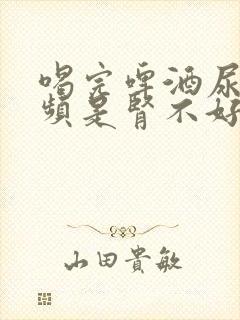 喝完啤酒尿
頻是腎不好
山田貴敏